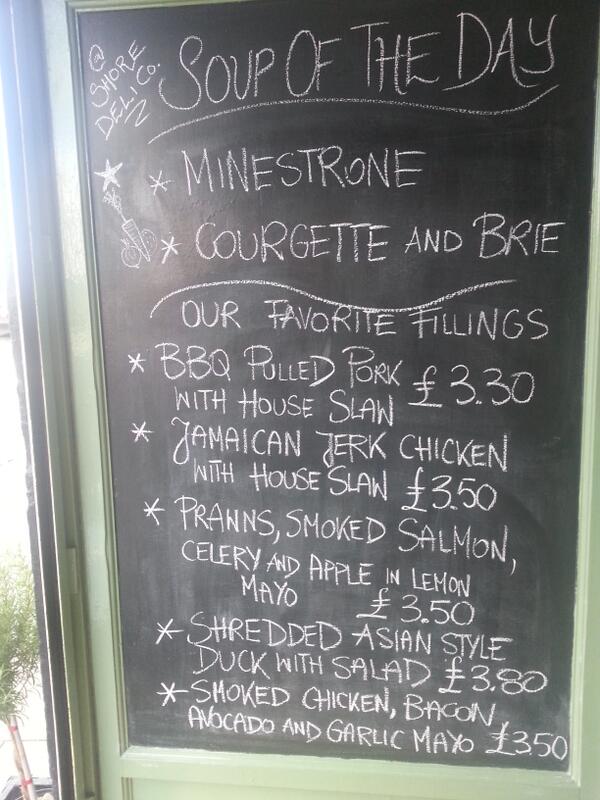 @
SHORE
DELI CO.
SOUP OF THE DAY
* MINESTRONE
* COURGETTE AND BRIE
OUR FAVORITE FILLINGS
* BBQ PULLED PORK
WITH HOUSE SLAW £3.30
* JAMAICAN JERK CHICKEN
WITH HOUSE SLAW £3.50
* PRAWNS, SMOKED SALMON,
CELERY AND APPLE IN LEMON
MAYO £3.50
* SHREDDED ASIAN STYLE
DUCK WITH SALAD £3.80
* SMOKED CHICKEN, BACON,
AVOCADO AND GARLIC MAYO £3.50